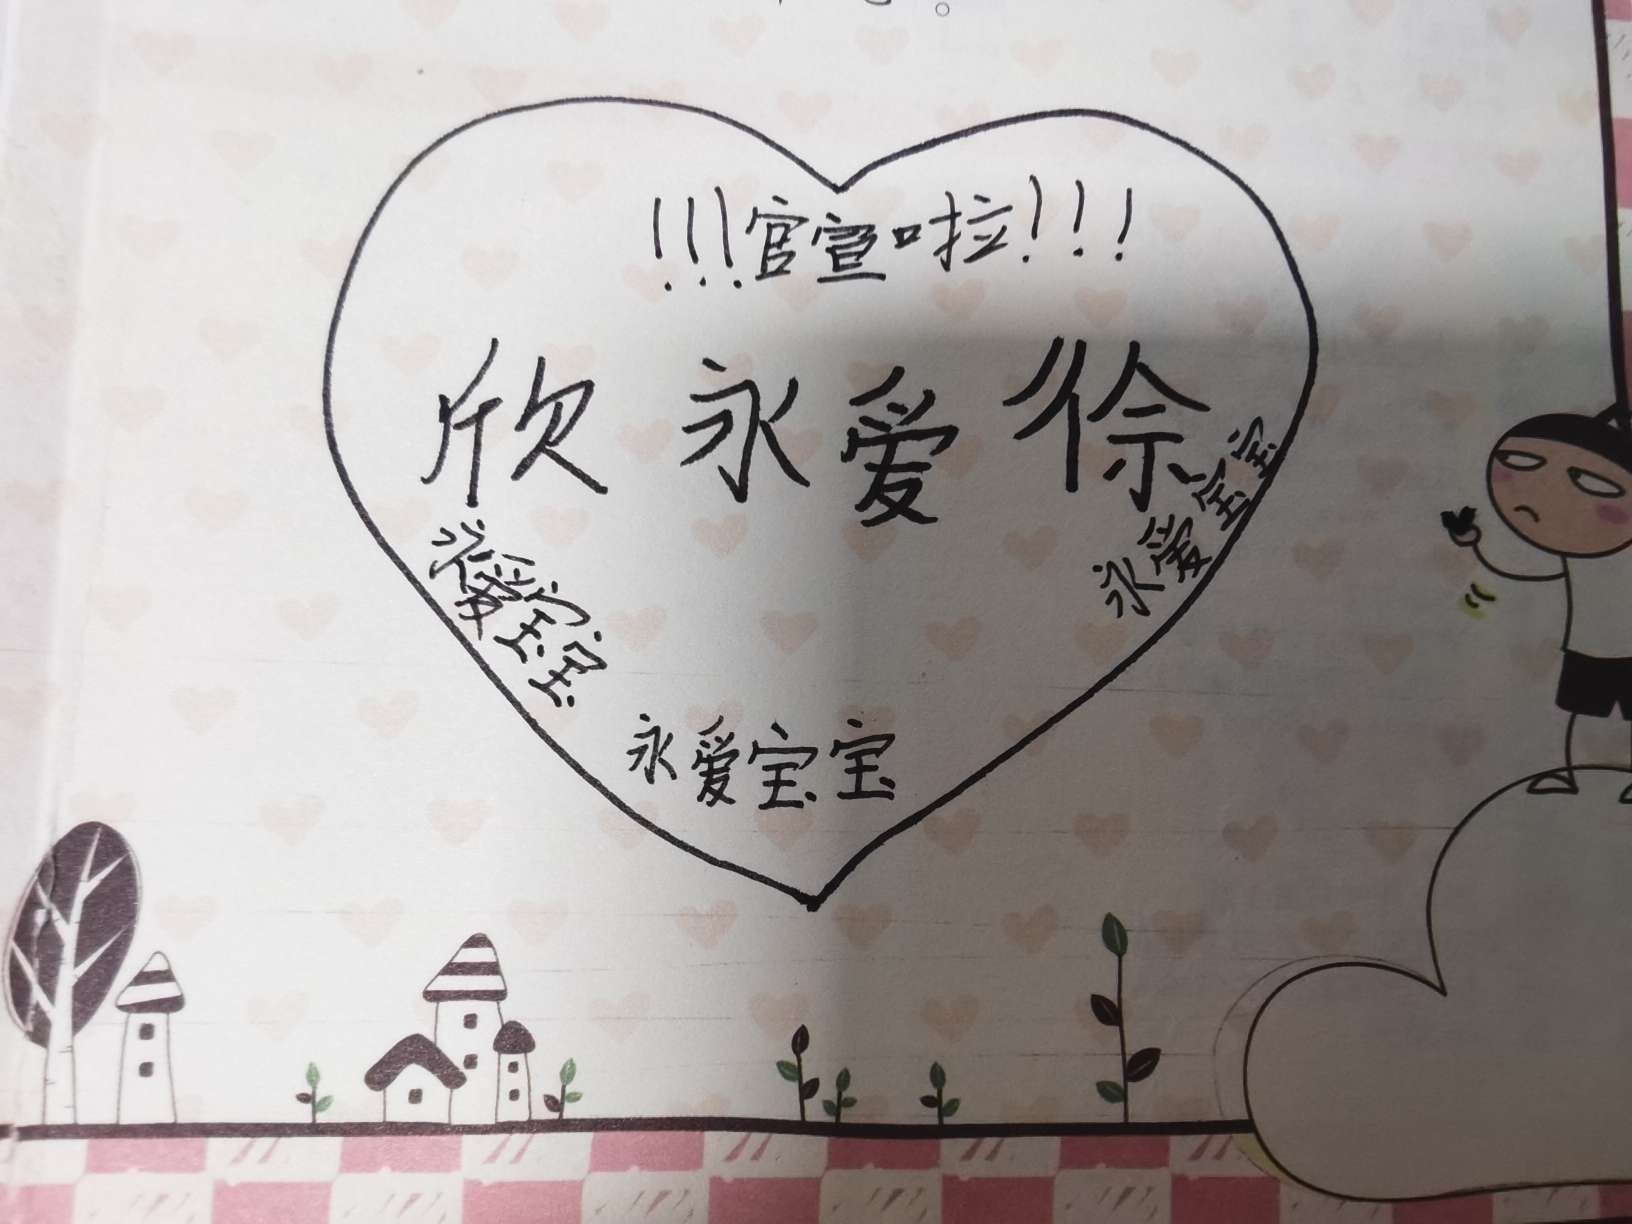 !!!官宣啦!!!
欣永爱徐
永爱宝宝
永爱宝宝
永爱宝宝